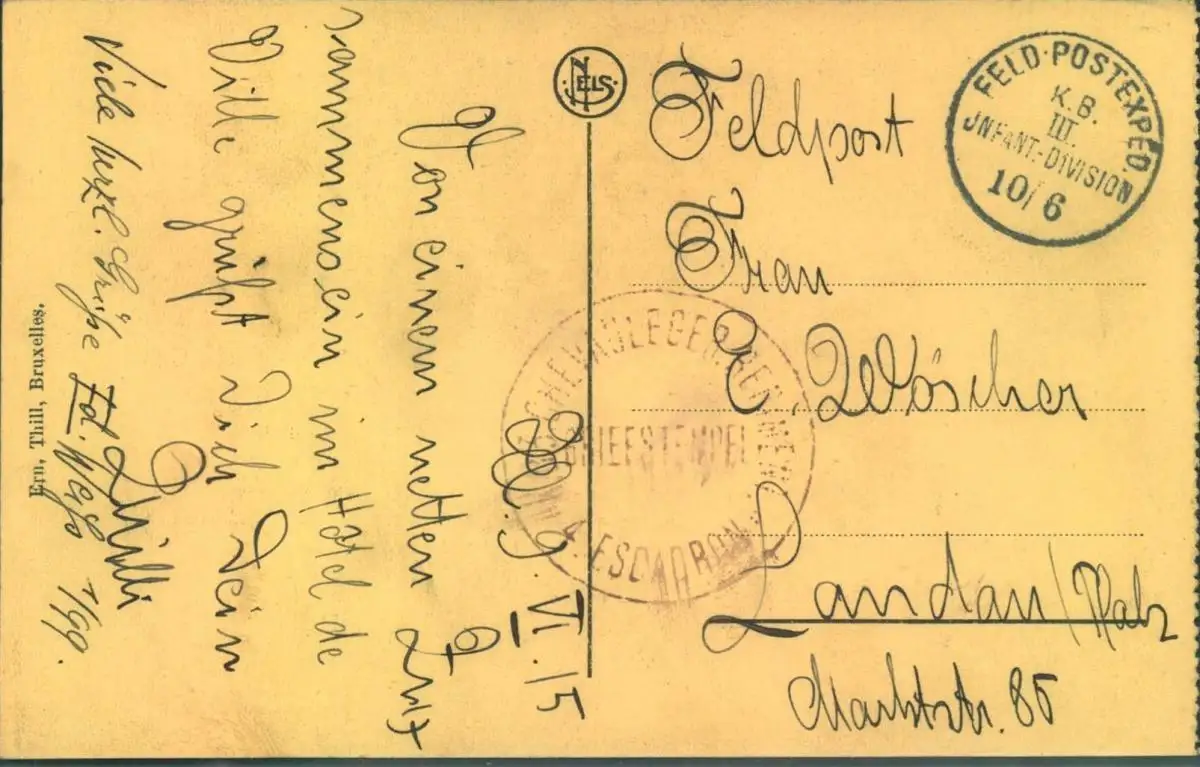 NELS
FELD-POSTEXPED.
K.B.
III.
INFANT.-DIVISION
10/6
Feldpost
Frau
E. Wöscher
Landau/Pfalz
Marktstr. 85
BRIEFSTEMPEL
ESCADRON
9. VI. 15
Von einem netten
sammensein im Hotel de
Ville grüßt Dich Dein
Willi
Viele herzl. Grüße
Ern, Thill, Bruxelles.